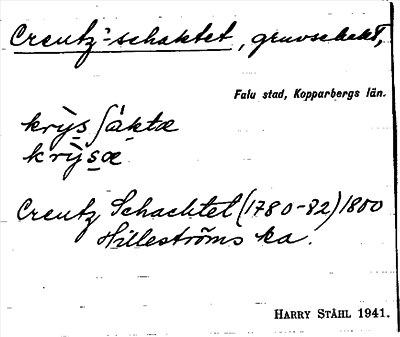 Creutz'-schaktet, gruvschakt,
Falu stad, Kopparbergs län.
krỳsʃáktæ
krỳsæ
Creutz Schachtet (1780-82) 1800
Hilleströms ka.
HARRY STÅHL 1941.